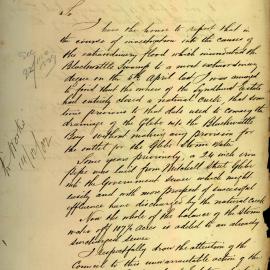 Sir
I have the honor to report that in
the course of investigation into the causes of
the extraordinary flood which inundated the
Blackwattle Swamp to a most extraordinary
degree on the 6th April last, I was amazed
to find that the owners of the Lyndhurst Estate
had entirely closed a natural creek that some
time previous to that date used to convey the
drainage of the Glebe into the Blackwattle
Bay without making any provision for
the outlet for the Glebe Storm water
Some years previously, a 24 inch iron
pipe was laid from Mitchell Street Glebe
into the Government sewer which might
easily and with more prospect of successful
effluence have discharged by the natural creek
Now the whole of the balance of the Storm
water off 117¾ acres is added to an already
surcharged sewer
I respectfully draw the attention of the
Council to this unwarrantable action of the